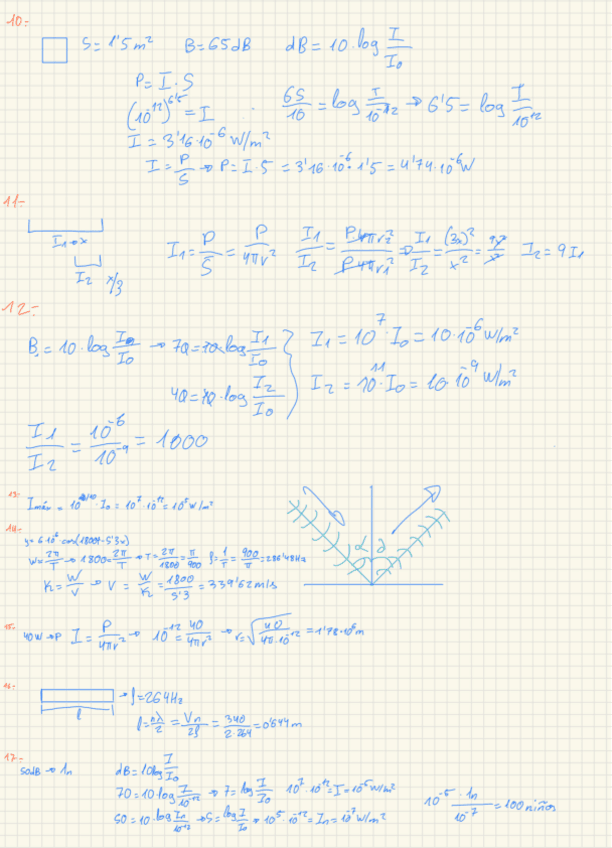 10.-
S = 1'5 m² B = 65 dB dB = 10 · log I/I₀
P = I · S
(10⁻¹²)^6'5 = I 65/10 = log I/10⁻¹² → 6'5 = log I/10⁻¹²
I = 3'16 · 10⁻⁶ W/m²
I = P/S → P = I · S = 3'16 · 10⁻⁶ · 1'5 = 4'74 · 10⁻⁶ W
11.-
I₁ → x
I₂ x/3
I₁ = P/S = P/4πr² I₁/I₂ = P4πr₂²/P4πr₁² → I₁/I₂ = (3x)²/x² = 9x²/x² I₂ = 9 I₁
12.-
B = 10 · log I/I₀ → 70 = 10 · log I₁/I₀ I₁ = 10⁷ · I₀ = 10 · 10⁻⁶ W/m²
40 = 10 · log I₂/I₀ I₂ = 10 · I₀ = 10 · 10⁻⁹ W/m²
I₁/I₂ = 10⁻⁶/10⁻⁹ = 1000
13.-
Imáx = · I₀ = 10⁷ · 10⁻¹² = 10⁻⁵ W/m²
α α
14.-
y = 6 · 10⁻⁶ cos(1800t - 5'3x)
W = 2π/T → 1800 = 2π/T → T = 2π/1800 = π/900 f = 1/T = 900/π = 286'48 Hz
K = W/V → V = W/K = 1800/5'3 = 339'62 m/s
15.-
40W → P I = P/4πr² → 10⁻¹² = 40/4πr² → r = √40/4π·10⁻¹² = 1'78 · 10⁶ m
16.-
→ f = 264 Hz
l
l = nλ/2 = Vn/2f = 340/2·264 = 0'644 m
17.-
50dB → 1n dB = 10 log I/I₀
70 = 10 log I/10⁻¹² → 7 = log I/I₀ 10⁷ · 10⁻¹² = I = 10⁻⁵ W/m²
50 = 10 · log In/10⁻¹² → 5 = log I/I₀ → 10⁵ · 10⁻¹² = In = 10⁻⁷ W/m²
10⁻⁵ · 1n/10⁻⁷ = 100 niños